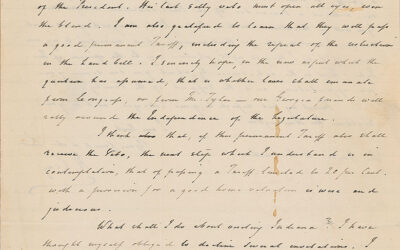 of the President. His last folly must open all eyes, even
the blind. I am also gratified to learn that they will pass
a good permanent Tariff, including the repeal of the restriction
in the Land bill. I sincerely hope, in the new aspect which the
question has assumed, that is whether laws shall emanate
from Congress, or from Mr. Tyler — our Georgia friends will
rally around the Independence of the Legislature.
I think also that, if this permanent Tariff also shall
receive the Veto, the next step which I understand is in
contemplation, that of passing a Tariff limited to 20 per Cent.
with a provision for a good home valuation is wise and
judicious.
What shall I do about visiting Indiana? I have
thought myself obliged to decline several invitations. I